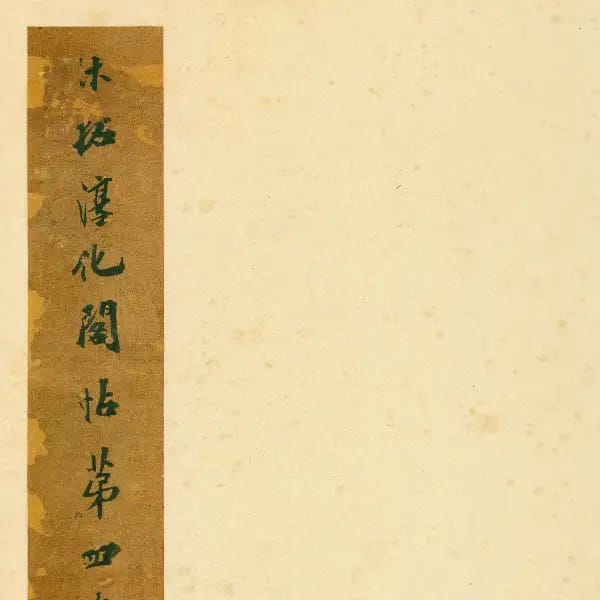 宋拓淳化閣帖第四